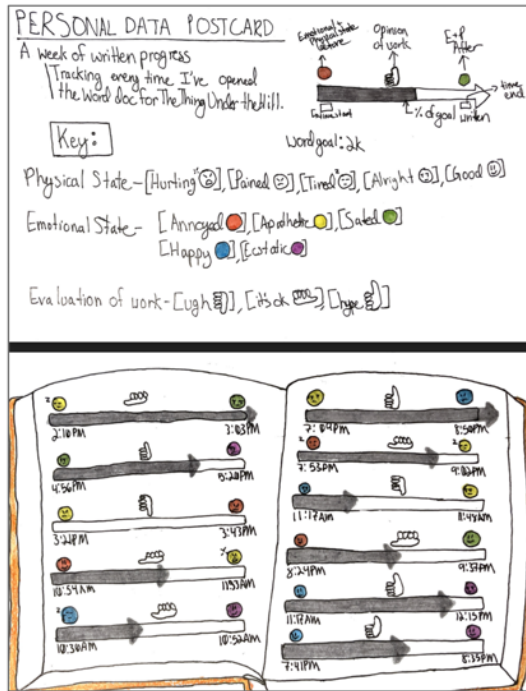 PERSONAL DATA POSTCARD
A week of written progress
Tracking every time I've opened
the Word doc for The Thing Under the Hill.
Emotional +
Physical State
Before
Opinion
of work
E+P
After
time
end
% of goal written
Word goal: 2k
Key:
Physical State - [Hurting], [Pained], [Tired], [Alright], [Good]
Emotional State - [Annoyed], [Apathetic], [Sated]
[Happy], [Ecstatic]
Evaluation of work - [ugh], [it's ok], [hype]
z
2:10PM 3:03PM
4:56PM 5:20PM
3:21PM 3:43PM
10:54AM 11:53AM
z
10:30AM 10:52AM
7:04PM 8:50PM
z z
7:53PM 9:02PM
11:17AM 11:48AM
8:24PM 9:37PM
11:17AM 12:15PM
7:41PM 8:35PM